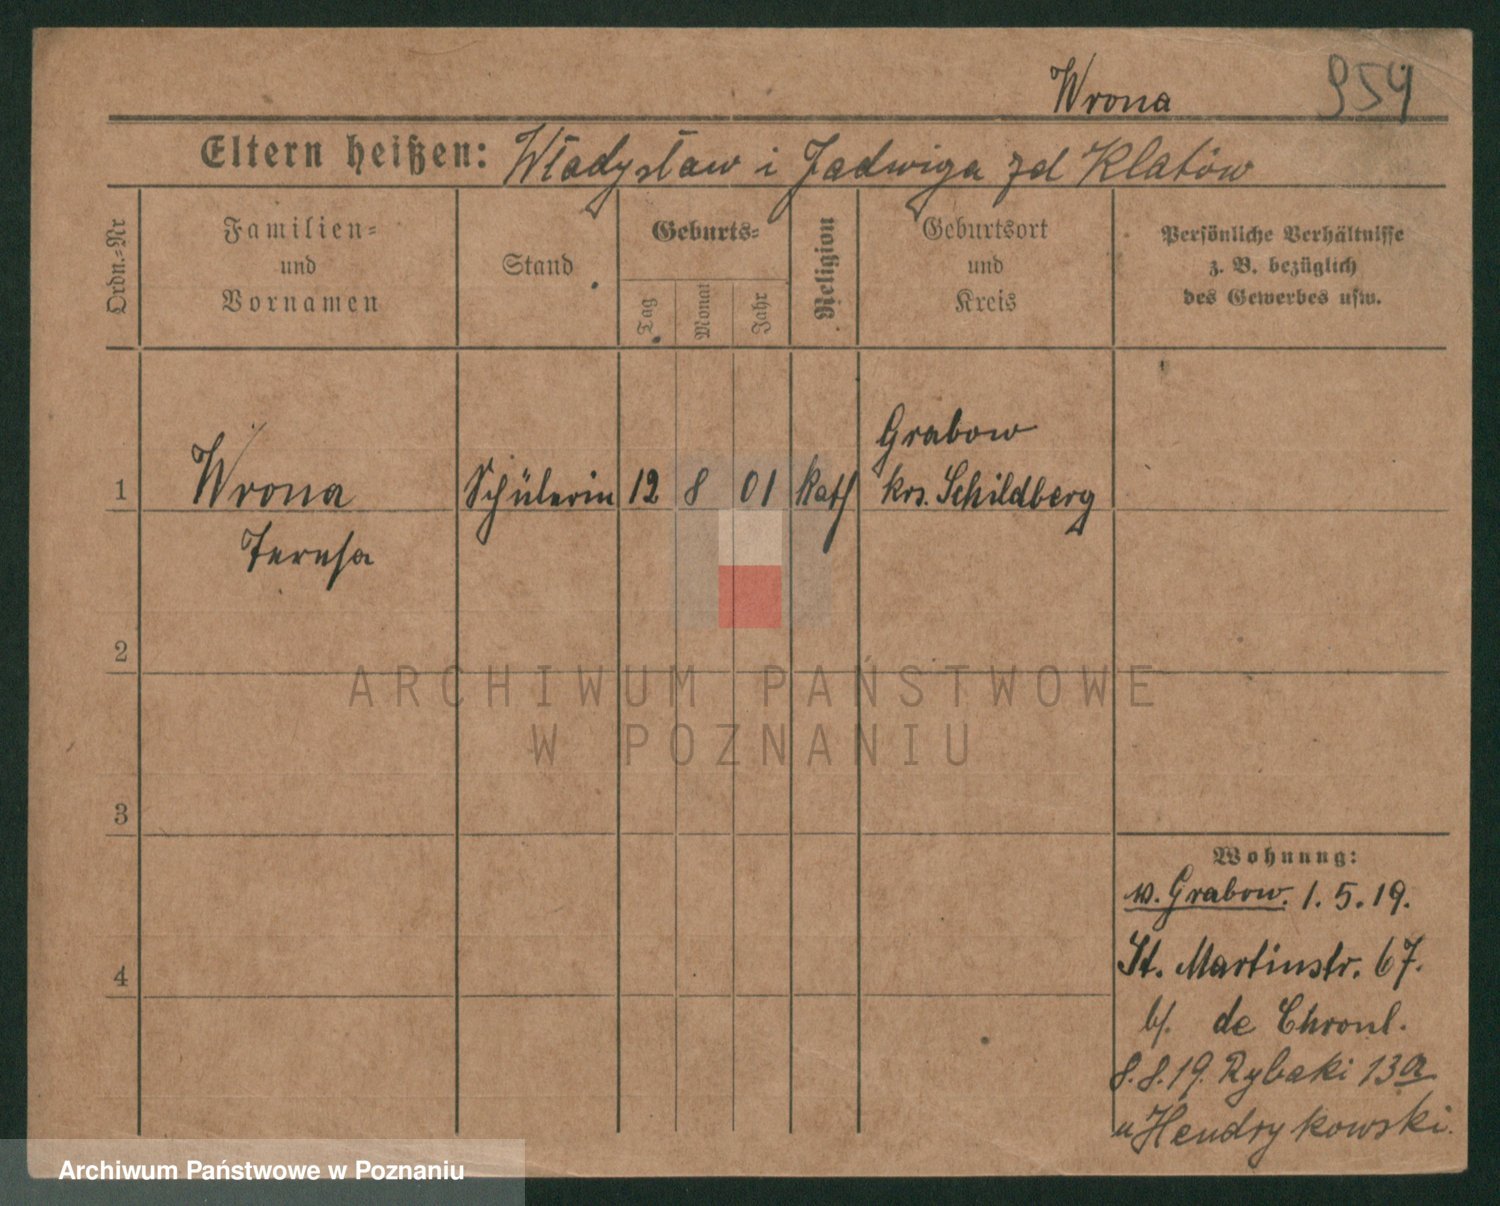 Wrona 954
Eltern heißen: Władysław i Jadwiga zd Klatów
Ordn.-Nr
Familien-
und
Vornamen
Stand
Geburts-
Tag
Monat
Jahr
Religion
Geburtsort
und
Kreis
Persönliche Verhältnisse
z. B. bezüglich
des Gewerbes usw.
Grabow
1 Wrona Schülerin 12 8 01 kath krs. Schildberg
Teresa
2
ARCHIWUM PAŃSTWOWE
W POZNANIU
3
Wohnung:
w. Grabow. 1. 5. 19.
4 St. Martinstr. 67.
b/. de Chronl.
8. 8. 19. Rybaki 13a
u Hendrykowski.
Archiwum Państwowe w Poznaniu